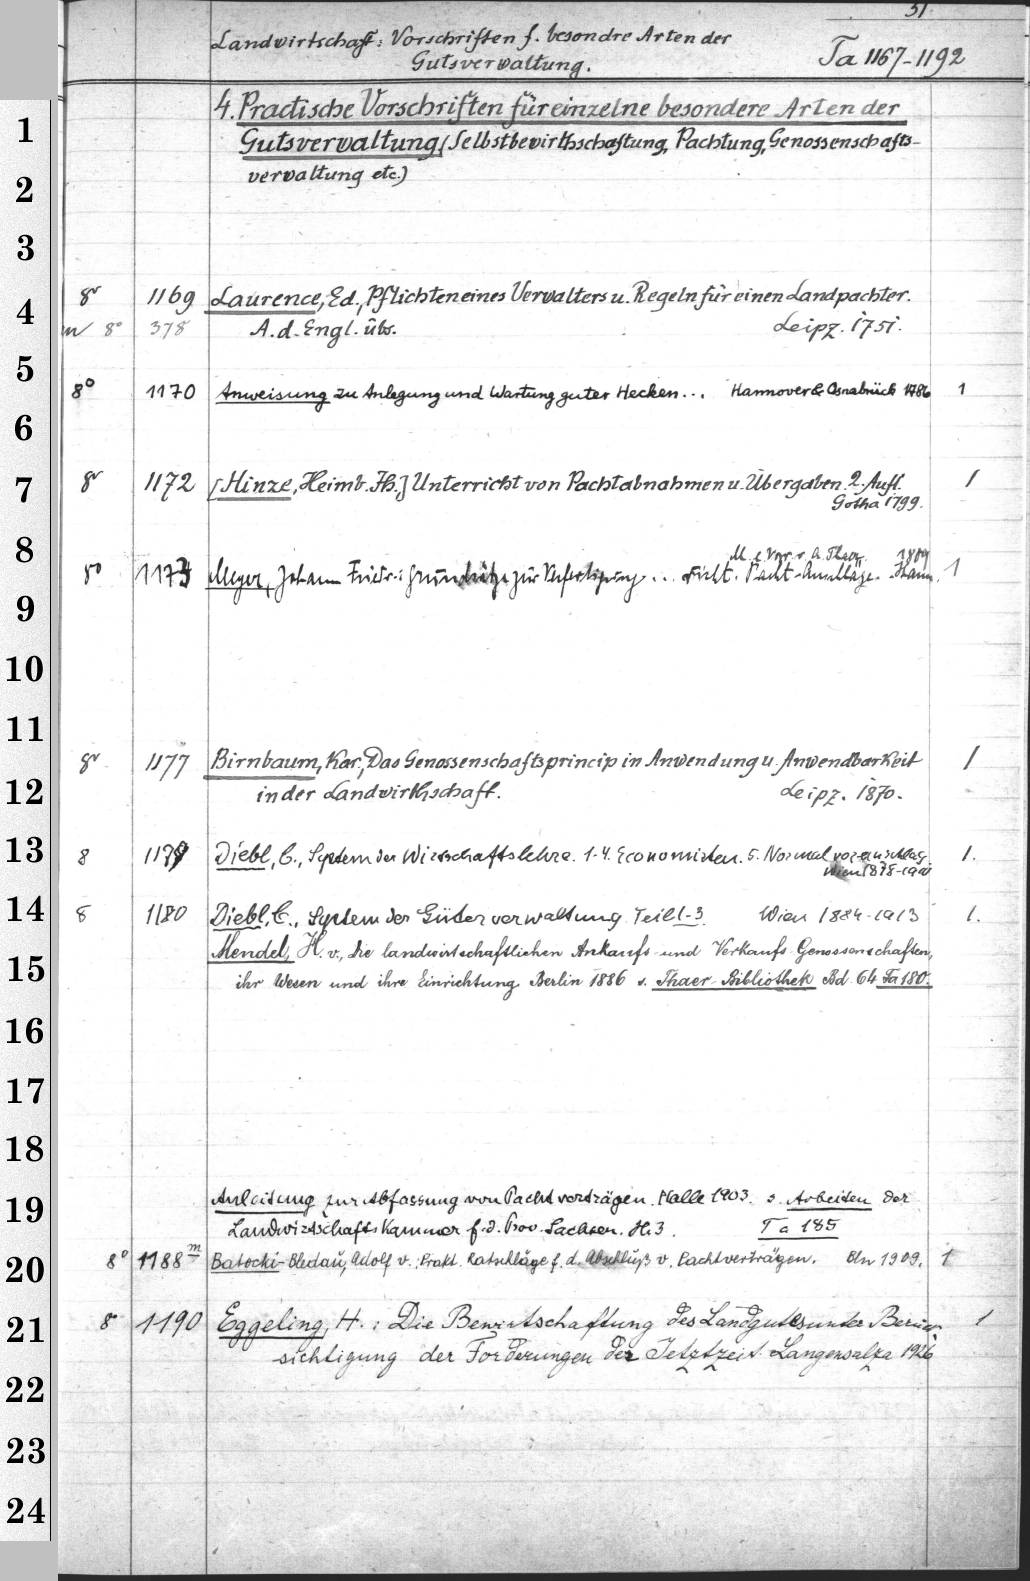 31.
Landwirtschaft: Vorschriften f. besondre Arten der
Gutsverwaltung.
Ta 1167-1192
4. Practische Vorschriften für einzelne besondere Arten der
Gutsverwaltung (Selbstbewirthschaftung, Pachtung, Genossenschafts-
verwaltung etc.)
8° 1169 Laurence, Ed., Pflichten eines Verwalters u. Regeln für einen Landpachter.
8° 378 A. d. Engl. übs. Leipz. 1751.
8° 1170 Anweisung zu Anlegung und Wartung guter Hecken... Hannover & Osnabrück 1786 1
8° 1172 [Hinze, Heimb. Th.,] Unterricht von Pachtabnahmen u. Übergaben. 2. Aufl. 1
Gotha 1799.
M. e. Vorr. v. A. Thaer 1809
8° 1173 Meyer, Johann Friedr.: Grundsätze zur Verfertigung... richt. Pacht-Anschläge. Hann. 1
8° 1177 Birnbaum, Kar., Das Genossenschaftsprincip in Anwendung u. Anwendbarkeit 1
in der Landwirthschaft. Leipz. 1870.
8 1179 Diebl, C., System der Wirtschaftslehre. 1-4. Economisten. 5. Normalvoranschlag. 1.
Wien 1878-1901
8 1180 Diebl, C., System der Güterverwaltung Teil 1-3 Wien 1884-1913 1.
Mendel, H. v., die landwirtschaftlichen Ankaufs- und Verkaufs-Genossenschaften,
ihr Wesen und ihre Einrichtung. Berlin 1886 s. Thaer-Bibliothek Bd 64 Ta 180.
Anleitung zur Abfassung von Pachtverträgen. Halle 1903. s. Arbeiten der
Landwirtschaftskammer f. d. Prov. Sachsen. H. 3. Ta 185
8° 1188m Batocki-Bledau, Adolf v.: Prakt. Ratschläge f. d. Abschluß v. Pachtverträgen. Bln 1909. 1
8° 1190 Eggeling, H.: Die Bewirtschaftung des Landgutes unter Berück- 1
sichtigung der Forderungen der Jetztzeit. Langensalza 1926
1
2
3
4
5
6
7
8
9
10
11
12
13
14
15
16
17
18
19
20
21
22
23
24